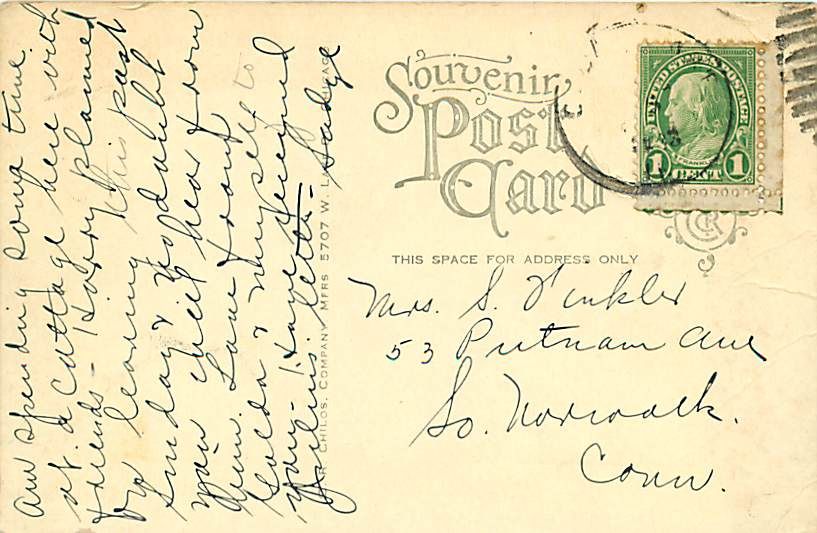 Am spending some time
at a cottage here with
friends - Harry planned
for leaving this past
Sunday & no doubt
you will hear from
him. Love from
Golda & myself to
you - Have received
letter - Sadye
C.R. CHILDS. COMPANY MFRS 5707 W. CHICAGO
Souvenir
Post
Card
THIS SPACE FOR ADDRESS ONLY
UNITED STATES POSTAGE
FRANKLIN
1 CENT 1
Mrs. S. Winkler
53 Putnam Ave
So. Norwalk.
Conn.